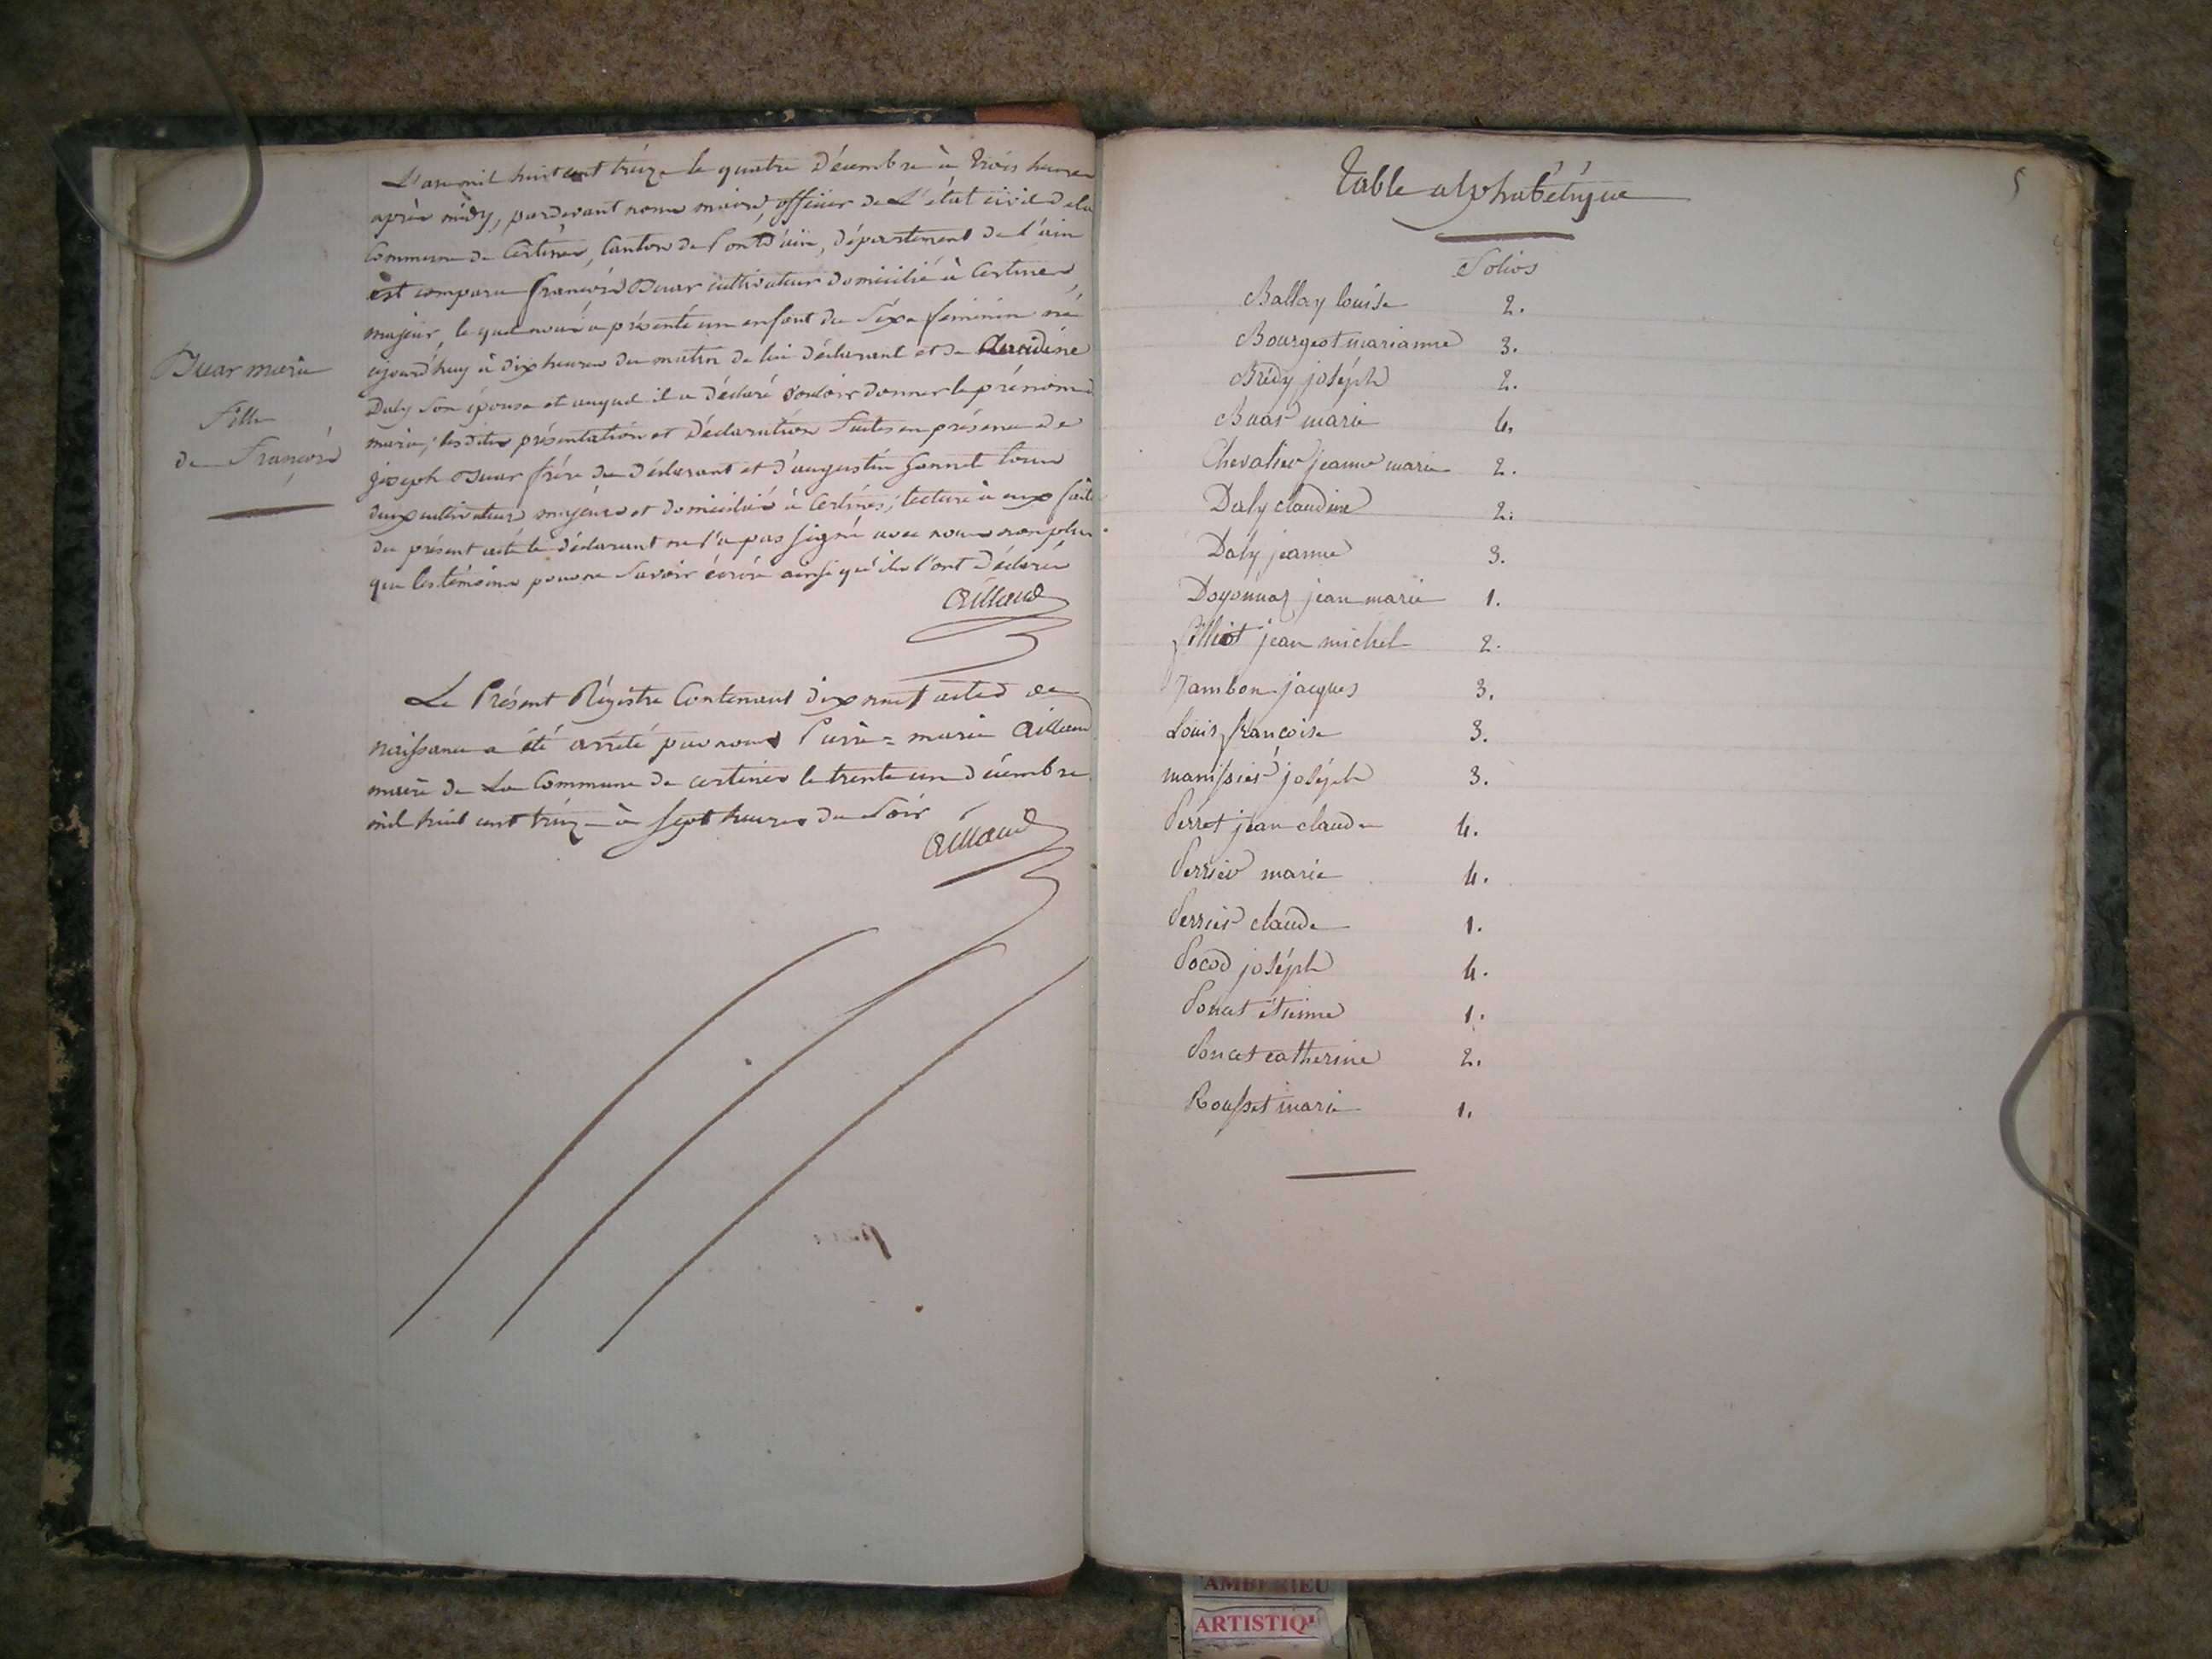 L'an mil huit cent treize le quatre décembre à trois heures
après midy, pardevant nous maire, officier de L'état civil dela
Commune de Certines, Canton de Pontd'ain, département de l'ain
est comparu françois Buar cultivateur domicilié à Certines,
majeur, le quel nous a présenté un enfant du Sexe féminin né
ajourd'huy à dix heures du matin de lui déclarant et de Claudine
Daly Son épouse et auquel il a déclaré vouloir donner le prénom de
marie; lesdites présentation et déclaration faites en présence de
joseph Buar frère du déclarant et d'augustin Gonnet tous
deux cultivateurs majeurs et domiciliés à Certines; lecture à eux faite
du présent acte le déclarant ne l'a pas signé avec nous non plus
que les témoins pour ne Savoir écrire ainsi qu'ils l'ont déclaré
Aillaud
Buar marie
fille
de François
Le Présent Régistre Contenant dix neuf actes de
naissance a été arrêté par nous Pierre=marie Aillaud
maire de La Commune de certines le trente un décembre
mil huit cent treize à sept heures du Soir
Aillaud
5
Table alphabétique
Folios
Ballay louise 2.
Bourgeot marianne 3.
Brédy joséph 2.
Buar marie 4.
Chevalier jeanne marie 2.
Daly claudine 2.
Daly jeanne 3.
Doyonnaz jean marie 1.
filliot jean michel 2.
Jambon jacques 3.
Louis françoise 3.
manissier joséph 3.
Perret jean claude 4.
Perrier marie 4.
Perrier claude 1.
Pocod joséph 4.
Poncet étienne 1.
Poncet catherine 2.
Rousset marie 1.
AMBERIEU
ARTISTIQ